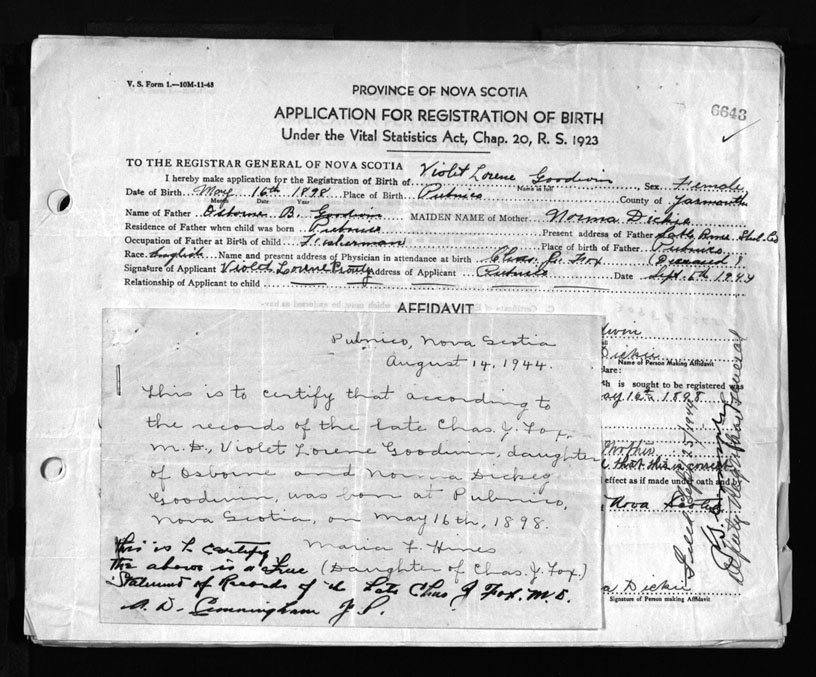 V. S. Form 1.—10M-11-43
PROVINCE OF NOVA SCOTIA
6643
APPLICATION FOR REGISTRATION OF BIRTH
Under the Vital Statistics Act, Chap. 20, R. S. 1923
TO THE REGISTRAR GENERAL OF NOVA SCOTIA
I hereby make application for the Registration of Birth of Violet Lorene Goodwin, Sex Female
Name in full
Date of Birth May 16th 1898 Place of Birth Pubnico County of Yarmouth
Month Date Year
Name of Father Osborne B. Goodwin MAIDEN NAME of Mother Norma Dickie
Residence of Father when child was born Pubnico Present address of Father Sable River Shel. Co
Occupation of Father at Birth of child Fisherman Place of birth of Father Pubnico
Race English Name and present address of Physician in attendance at birth Chas. J. Fox (Deceased)
Signature of Applicant Violet Lorene Address of Applicant Pubnico Date Sept. 6th 1944
Relationship of Applicant to child
AFFIDAVIT
Pubnico, Nova Scotia
August 14, 1944.
This is to certify that according to
the records of the late Chas. J. Fox,
M.D., Violet Lorene Goodwin, daughter
of Osborne and Norma Dickey
Goodwin, was born at Pubnico,
Nova Scotia, on May 16th, 1898.
Maria F. Hines
(Daughter of Chas. J. Fox.)
This is to certify
the above is a true
Statement of Records of the Late Chas J Fox. M.D.
A. D. Cunningham J.P.
Name of Person Making Affidavit
th is sought to be registered was
ay 16th 1898
that this is correct
effect as if made under oath and by
Nova Scotia
a Dickie
Signature of Person making Affidavit
Deputy Registrar General